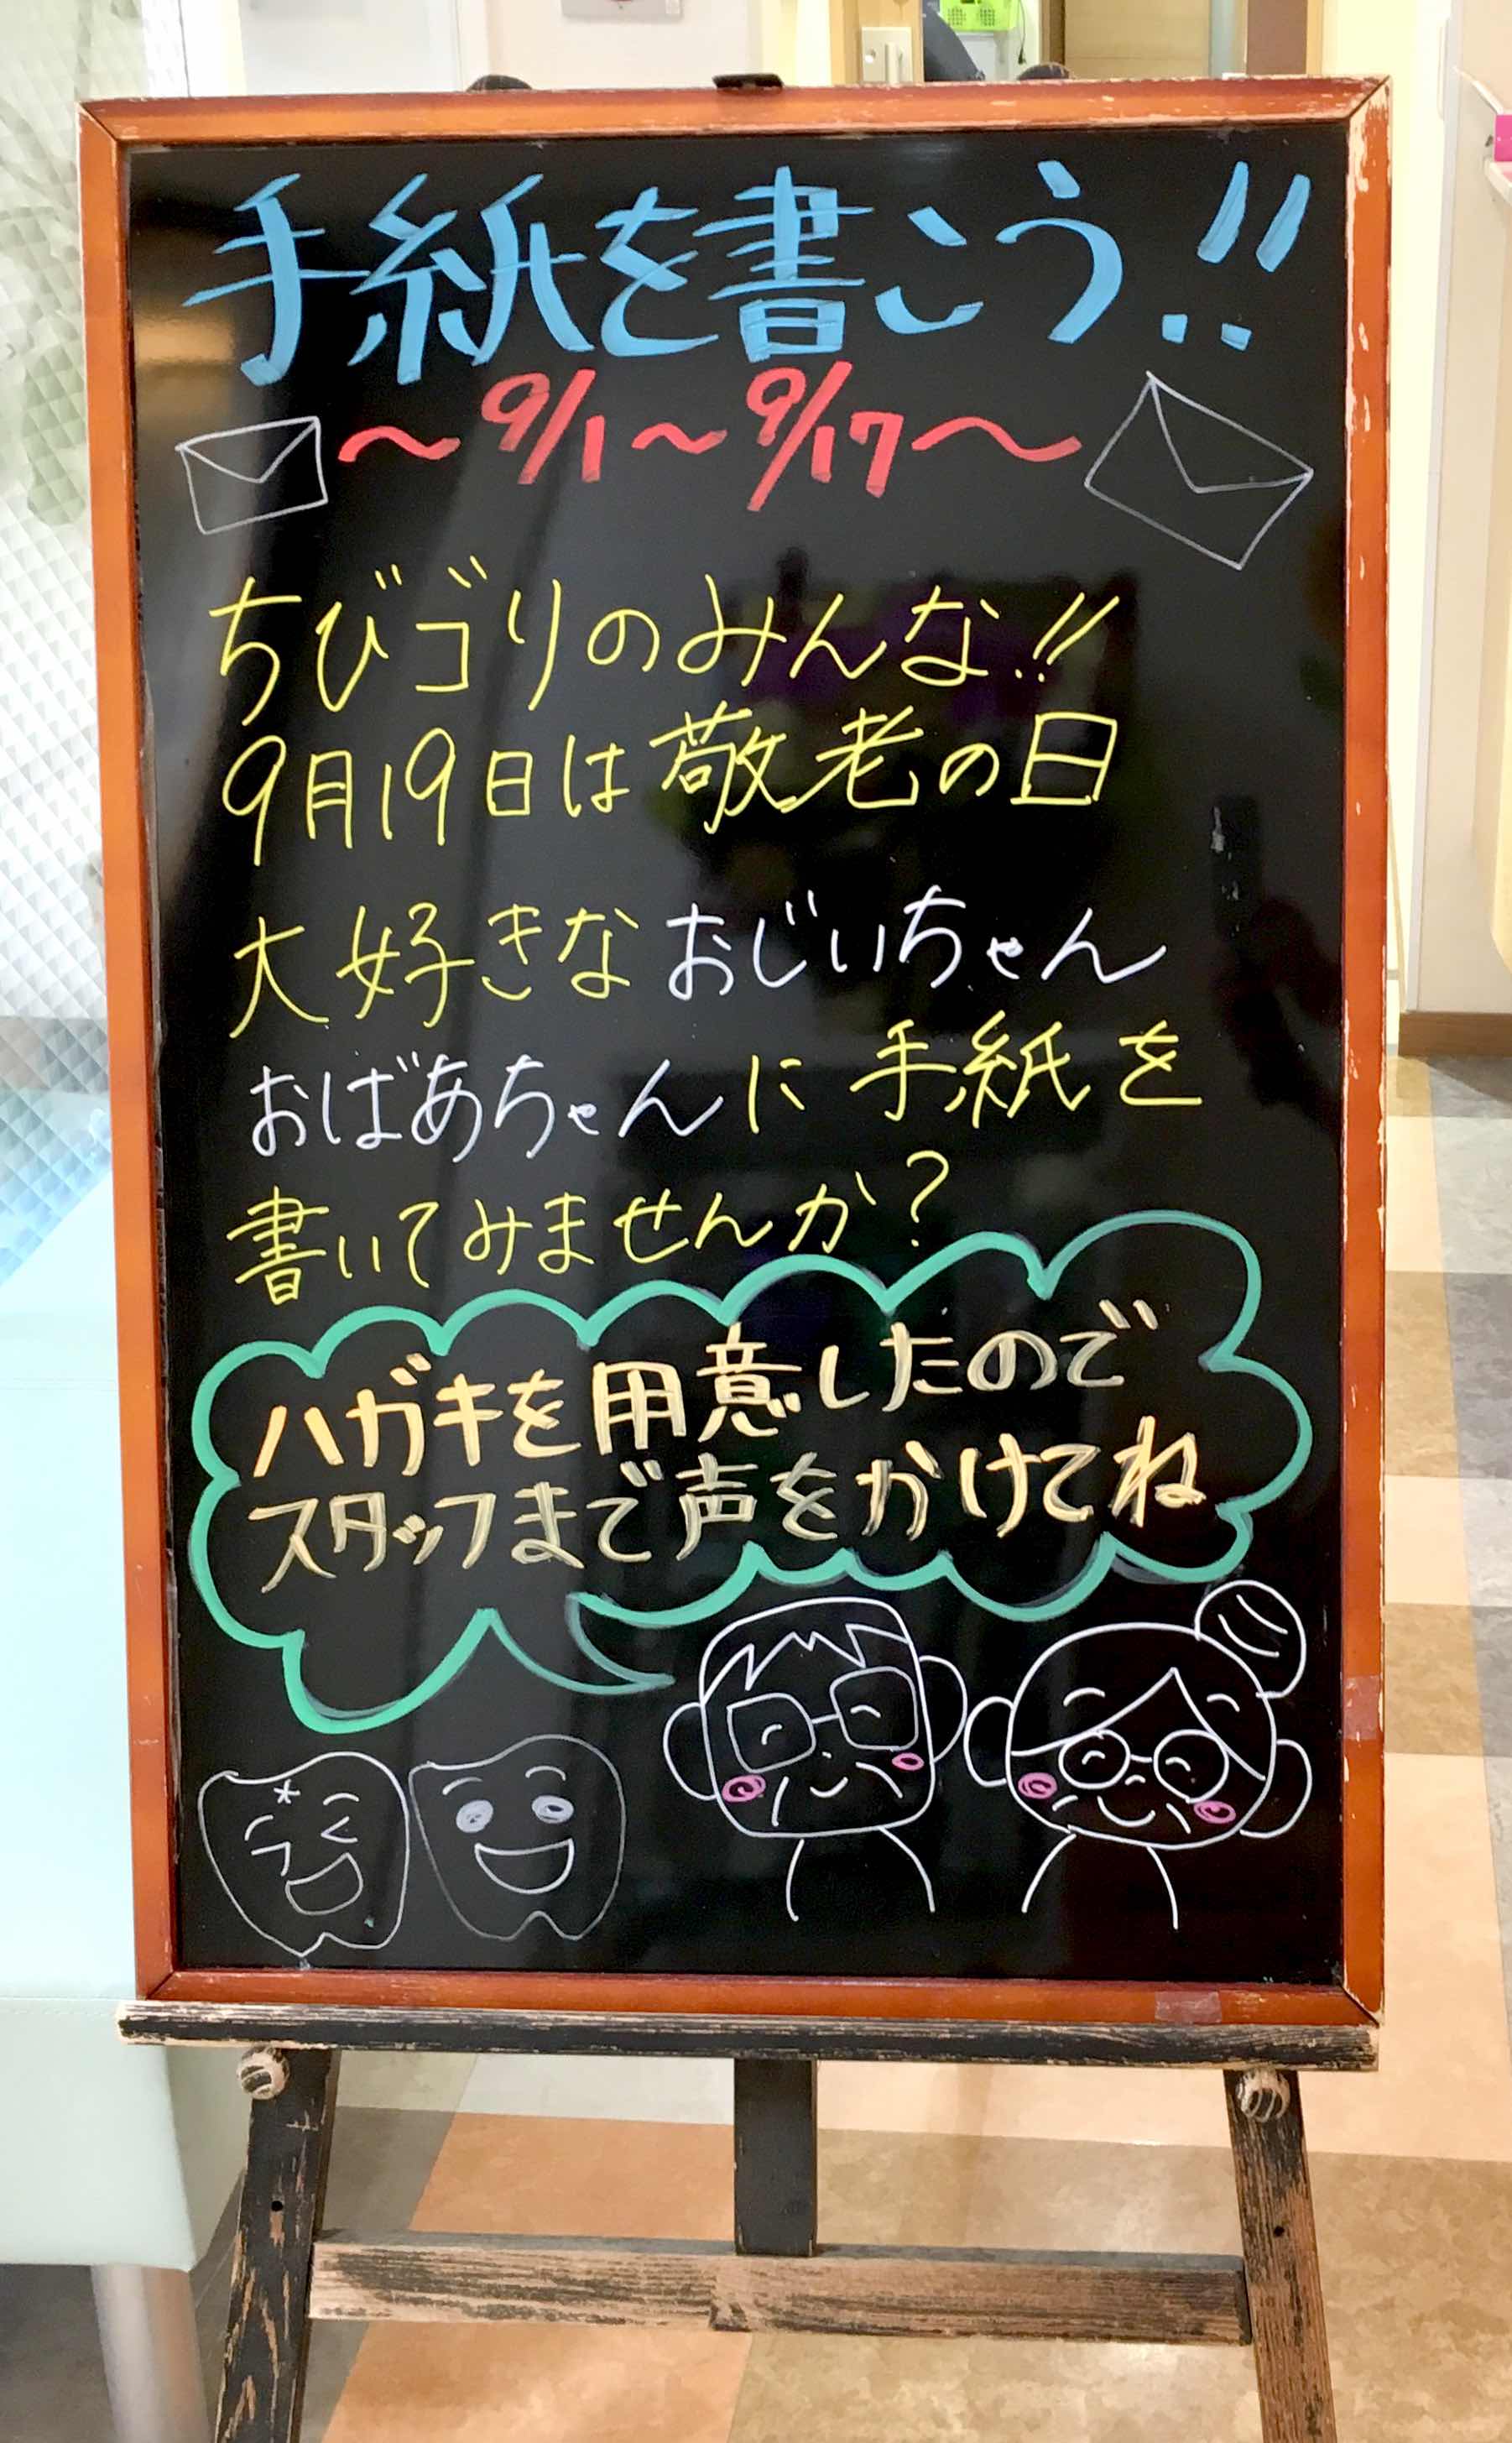 手紙を書こう!!
〜9/1〜9/17〜
ちびゴリのみんな!!
9月19日は敬老の日
大好きなおじいちゃん
おばあちゃんに手紙を
書いてみませんか?
ハガキを用意したので
スタッフまで声をかけてね